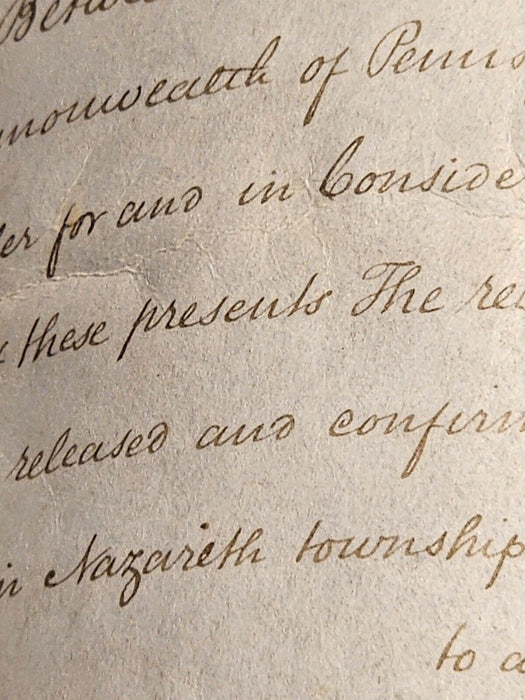 Betwe
monwealth of Penns
for and in Conside
these presents The re
released and confirm
in Nazareth township
to a